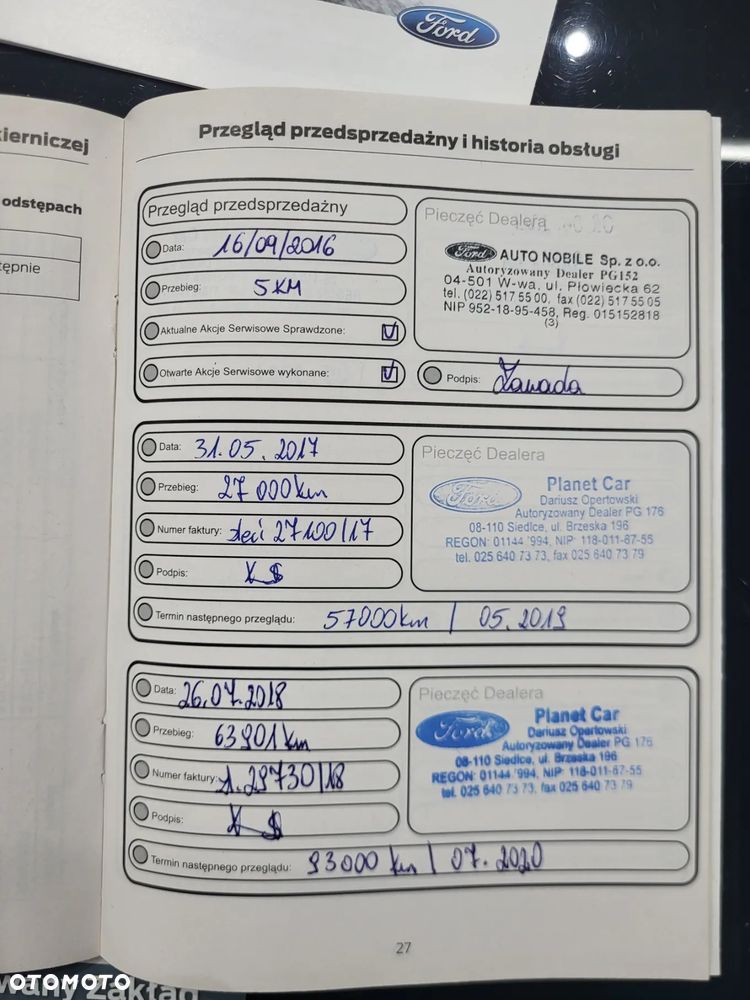 Ford
kierniczej
odstępach
tępnie
Przegląd przedsprzedażny i historia obsługi
Przegląd przedsprzedażny
Data: 16/09/2016
Przebieg: 5 KM
Aktualne Akcje Serwisowe Sprawdzone:
Otwarte Akcje Serwisowe wykonane:
Pieczęć Dealera
Ford AUTO NOBILE Sp. z o.o.
Autoryzowany Dealer PG152
04-501 W-wa, ul. Płowiecka 62
tel. (022) 517 55 00, fax (022) 517 55 05
NIP 952-18-95-458, Reg. 015152818
(3)
Podpis: Zawada
Data: 31.05.2017
Przebieg: 27 000 km
Numer faktury: zlec 27100/17
Podpis:
Pieczęć Dealera
Ford
Planet Car
Dariusz Opertowski
Autoryzowany Dealer PG 176
08-110 Siedlce, ul. Brzeska 196
REGON: 01144 '994, NIP: 118-011-67-55
tel. 025 640 73 73, fax 025 640 73 79
Termin następnego przeglądu: 57000 km / 05.2019
Data: 26.07.2018
Przebieg: 63901 km
Numer faktury: 1.29730/18
Podpis:
Pieczęć Dealera
Ford
Planet Car
Dariusz Opertowski
Autoryzowany Dealer PG 176
08-110 Siedlce, ul. Brzeska 196
REGON: 01144 '994, NIP: 118-011-67-55
tel. 025 640 73 73, fax 025 640 73 79
Termin następnego przeglądu: 93000 km / 07.2020
27
OTOMOTO
wany Zakład